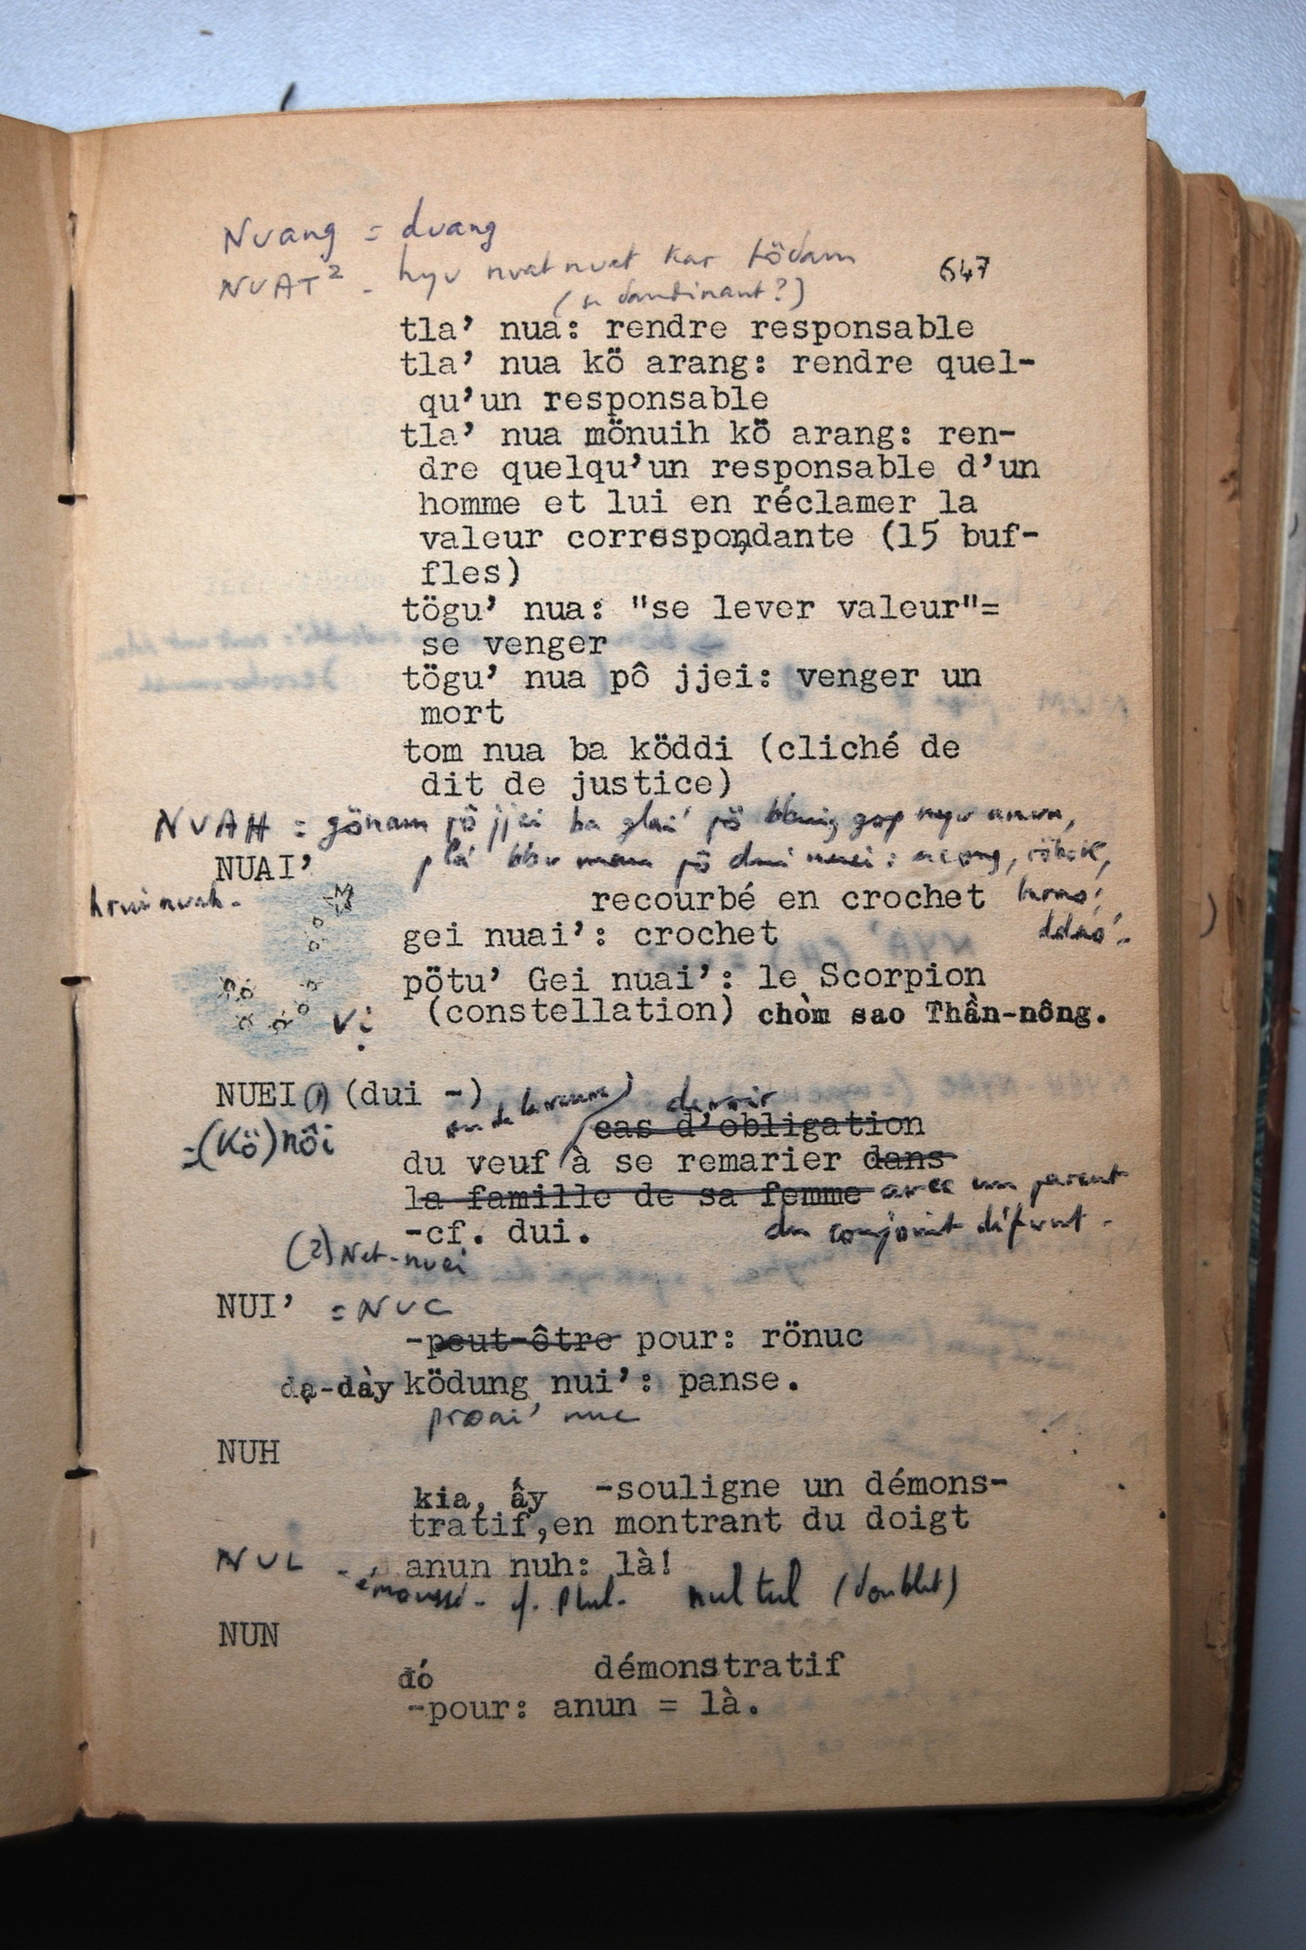 Nuang = duang
NUAT² - hyu nuat nuet kar tödam
647
(se dandinant?)
tla’ nua: rendre responsable
tla’ nua kö arang: rendre quel-
qu’un responsable
tla’ nua mönuih kö arang: ren-
dre quelqu’un responsable d’un
homme et lui en réclamer la
valeur correspondante (15 buf-
fles)
tögu’ nua: "se lever valeur"=
se venger
tögu’ nua pô jjei: venger un
mort
tom nua ba köddi (cliché de
dit de justice)
NUAH = gönam pô jjei ba glai’ pö
NUAI’
hrui nuah.
recourbé en crochet
gei nuai’: crochet
pötu’ Gei nuai’: le Scorpion
(constellation) chòm sao Thần-nông.
Vị
NUEI (1) (dui -)
ou de la veuve) devoir
=(Kö)nôi
cas d’obligation
du veuf à se remarier dans
la famille de sa femme avec un parent
-cf. dui. du conjoint défunt -
(2) Net-nuei
NUI’ = NUC
-peut-être pour: rönuc
dạ-dày ködung nui’: panse.
proai’ nuc
NUH
kia, ấy -souligne un démons-
tratif, en montrant du doigt
anun nuh: là!
NUL - émoussé - cf. Plul. nul tul (doublet)
NUN
đó démonstratif
-pour: anun = là.